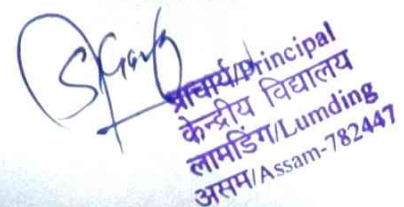 प्राचार्य/Principal
केन्द्रीय विद्यालय
लामडिंग/Lumding
असम/Assam-782447